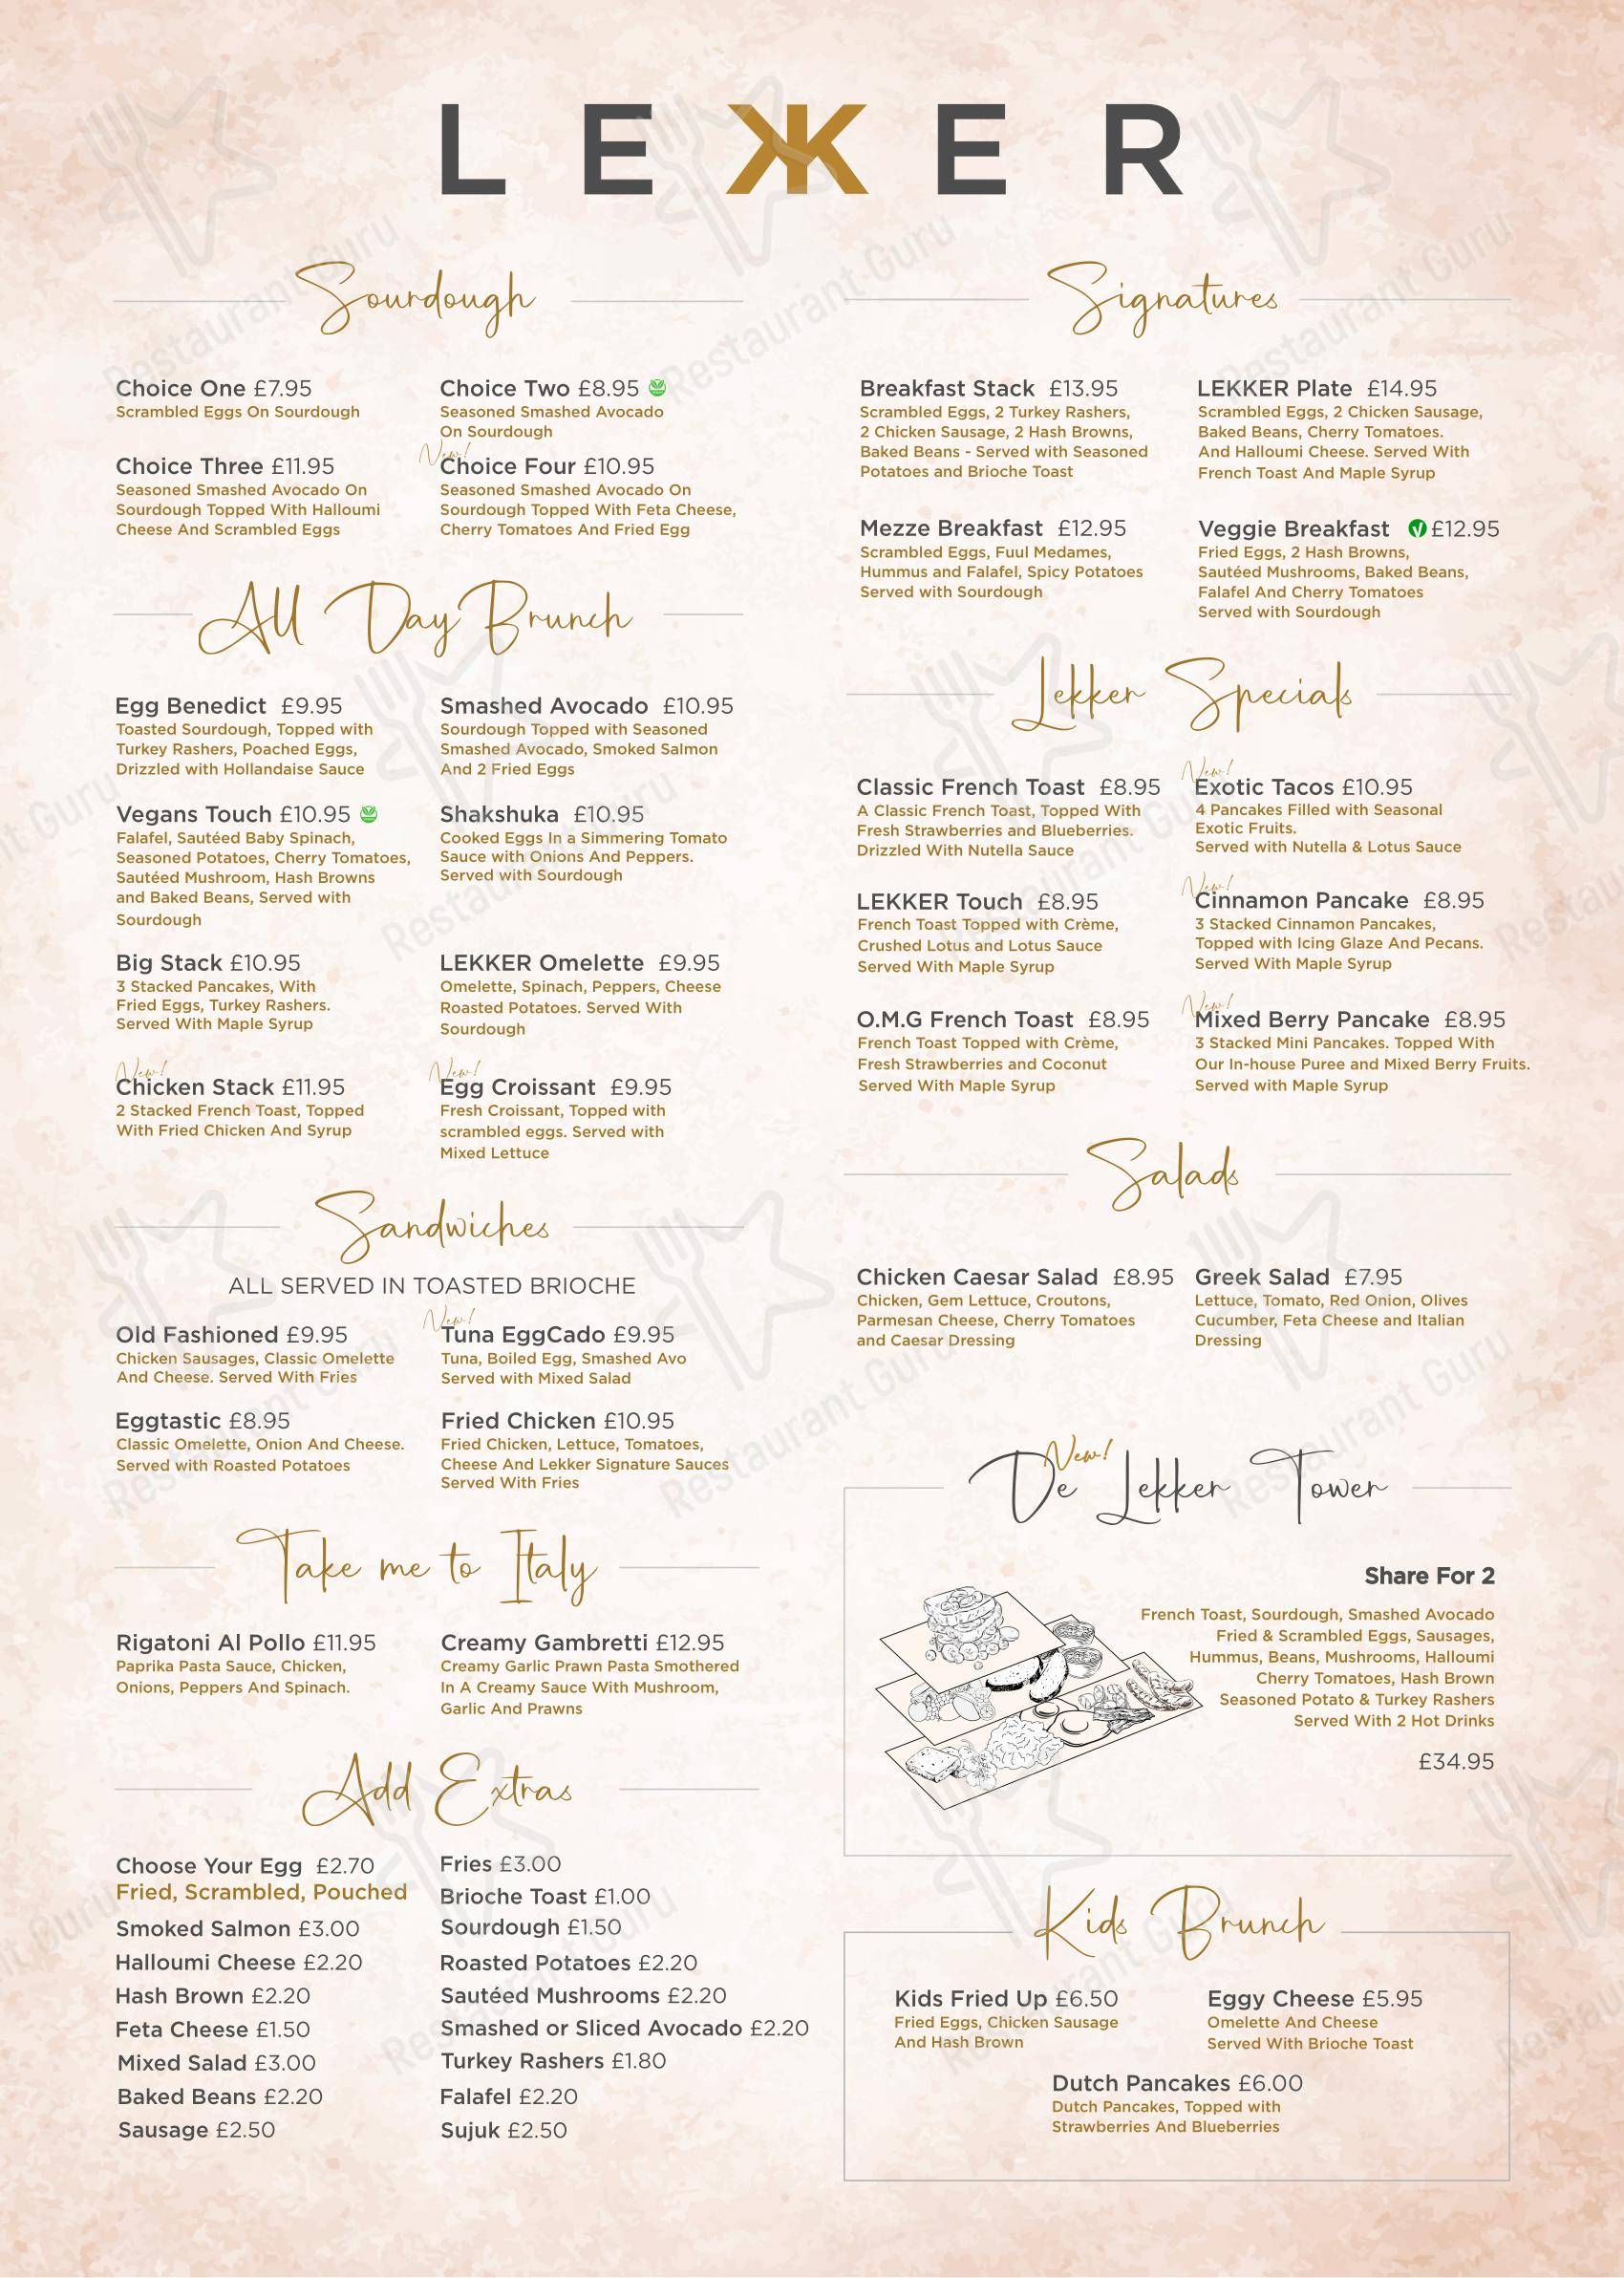 LEKKER
Sourdough
Choice One £7.95
Scrambled Eggs On Sourdough
Choice Two £8.95
Seasoned Smashed Avocado
On Sourdough
Choice Three £11.95
Seasoned Smashed Avocado On
Sourdough Topped With Halloumi
Cheese And Scrambled Eggs
New!
Choice Four £10.95
Seasoned Smashed Avocado On
Sourdough Topped With Feta Cheese,
Cherry Tomatoes And Fried Egg
All Day Brunch
Egg Benedict £9.95
Toasted Sourdough, Topped with
Turkey Rashers, Poached Eggs,
Drizzled with Hollandaise Sauce
Smashed Avocado £10.95
Sourdough Topped with Seasoned
Smashed Avocado, Smoked Salmon
And 2 Fried Eggs
Vegans Touch £10.95
Falafel, Sautéed Baby Spinach,
Seasoned Potatoes, Cherry Tomatoes,
Sautéed Mushroom, Hash Browns
and Baked Beans, Served with
Sourdough
Shakshuka £10.95
Cooked Eggs In a Simmering Tomato
Sauce with Onions And Peppers.
Served with Sourdough
Big Stack £10.95
3 Stacked Pancakes, With
Fried Eggs, Turkey Rashers.
Served With Maple Syrup
LEKKER Omelette £9.95
Omelette, Spinach, Peppers, Cheese
Roasted Potatoes. Served With
Sourdough
New!
Chicken Stack £11.95
2 Stacked French Toast, Topped
With Fried Chicken And Syrup
New!
Egg Croissant £9.95
Fresh Croissant, Topped with
scrambled eggs. Served with
Mixed Lettuce
Sandwiches
ALL SERVED IN TOASTED BRIOCHE
Old Fashioned £9.95
Chicken Sausages, Classic Omelette
And Cheese. Served With Fries
New!
Tuna EggCado £9.95
Tuna, Boiled Egg, Smashed Avo
Served with Mixed Salad
Eggtastic £8.95
Classic Omelette, Onion And Cheese.
Served with Roasted Potatoes
Fried Chicken £10.95
Fried Chicken, Lettuce, Tomatoes,
Cheese And Lekker Signature Sauces
Served With Fries
Take me to Italy
Rigatoni Al Pollo £11.95
Paprika Pasta Sauce, Chicken,
Onions, Peppers And Spinach.
Creamy Gambretti £12.95
Creamy Garlic Prawn Pasta Smothered
In A Creamy Sauce With Mushroom,
Garlic And Prawns
Add Extras
Choose Your Egg £2.70
Fried, Scrambled, Pouched
Smoked Salmon £3.00
Halloumi Cheese £2.20
Hash Brown £2.20
Feta Cheese £1.50
Mixed Salad £3.00
Baked Beans £2.20
Sausage £2.50
Fries £3.00
Brioche Toast £1.00
Sourdough £1.50
Roasted Potatoes £2.20
Sautéed Mushrooms £2.20
Smashed or Sliced Avocado £2.20
Turkey Rashers £1.80
Falafel £2.20
Sujuk £2.50
Signatures
Breakfast Stack £13.95
Scrambled Eggs, 2 Turkey Rashers,
2 Chicken Sausage, 2 Hash Browns,
Baked Beans - Served with Seasoned
Potatoes and Brioche Toast
LEKKER Plate £14.95
Scrambled Eggs, 2 Chicken Sausage,
Baked Beans, Cherry Tomatoes.
And Halloumi Cheese. Served With
French Toast And Maple Syrup
Mezze Breakfast £12.95
Scrambled Eggs, Fuul Medames,
Hummus and Falafel, Spicy Potatoes
Served with Sourdough
Veggie Breakfast V £12.95
Fried Eggs, 2 Hash Browns,
Sautéed Mushrooms, Baked Beans,
Falafel And Cherry Tomatoes
Served with Sourdough
Lekker Specials
Classic French Toast £8.95
A Classic French Toast, Topped With
Fresh Strawberries and Blueberries.
Drizzled With Nutella Sauce
New!
Exotic Tacos £10.95
4 Pancakes Filled with Seasonal
Exotic Fruits.
Served with Nutella & Lotus Sauce
LEKKER Touch £8.95
French Toast Topped with Crème,
Crushed Lotus and Lotus Sauce
Served With Maple Syrup
New!
Cinnamon Pancake £8.95
3 Stacked Cinnamon Pancakes,
Topped with Icing Glaze And Pecans.
Served With Maple Syrup
O.M.G French Toast £8.95
French Toast Topped with Crème,
Fresh Strawberries and Coconut
Served With Maple Syrup
New!
Mixed Berry Pancake £8.95
3 Stacked Mini Pancakes. Topped With
Our In-house Puree and Mixed Berry Fruits.
Served with Maple Syrup
Salads
Chicken Caesar Salad £8.95
Chicken, Gem Lettuce, Croutons,
Parmesan Cheese, Cherry Tomatoes
and Caesar Dressing
Greek Salad £7.95
Lettuce, Tomato, Red Onion, Olives
Cucumber, Feta Cheese and Italian
Dressing
New!
De Lekker Tower
Share For 2
French Toast, Sourdough, Smashed Avocado
Fried & Scrambled Eggs, Sausages,
Hummus, Beans, Mushrooms, Halloumi
Cherry Tomatoes, Hash Brown
Seasoned Potato & Turkey Rashers
Served With 2 Hot Drinks
£34.95
Kids Brunch
Kids Fried Up £6.50
Fried Eggs, Chicken Sausage
And Hash Brown
Eggy Cheese £5.95
Omelette And Cheese
Served With Brioche Toast
Dutch Pancakes £6.00
Dutch Pancakes, Topped with
Strawberries And Blueberries
Restaurant Guru